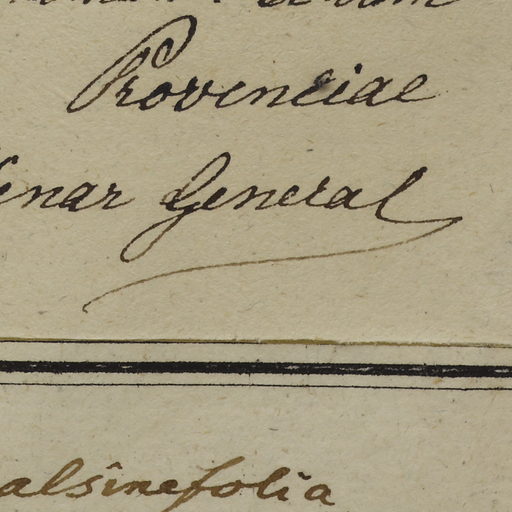 Provinciae
enar General
alsinefolia